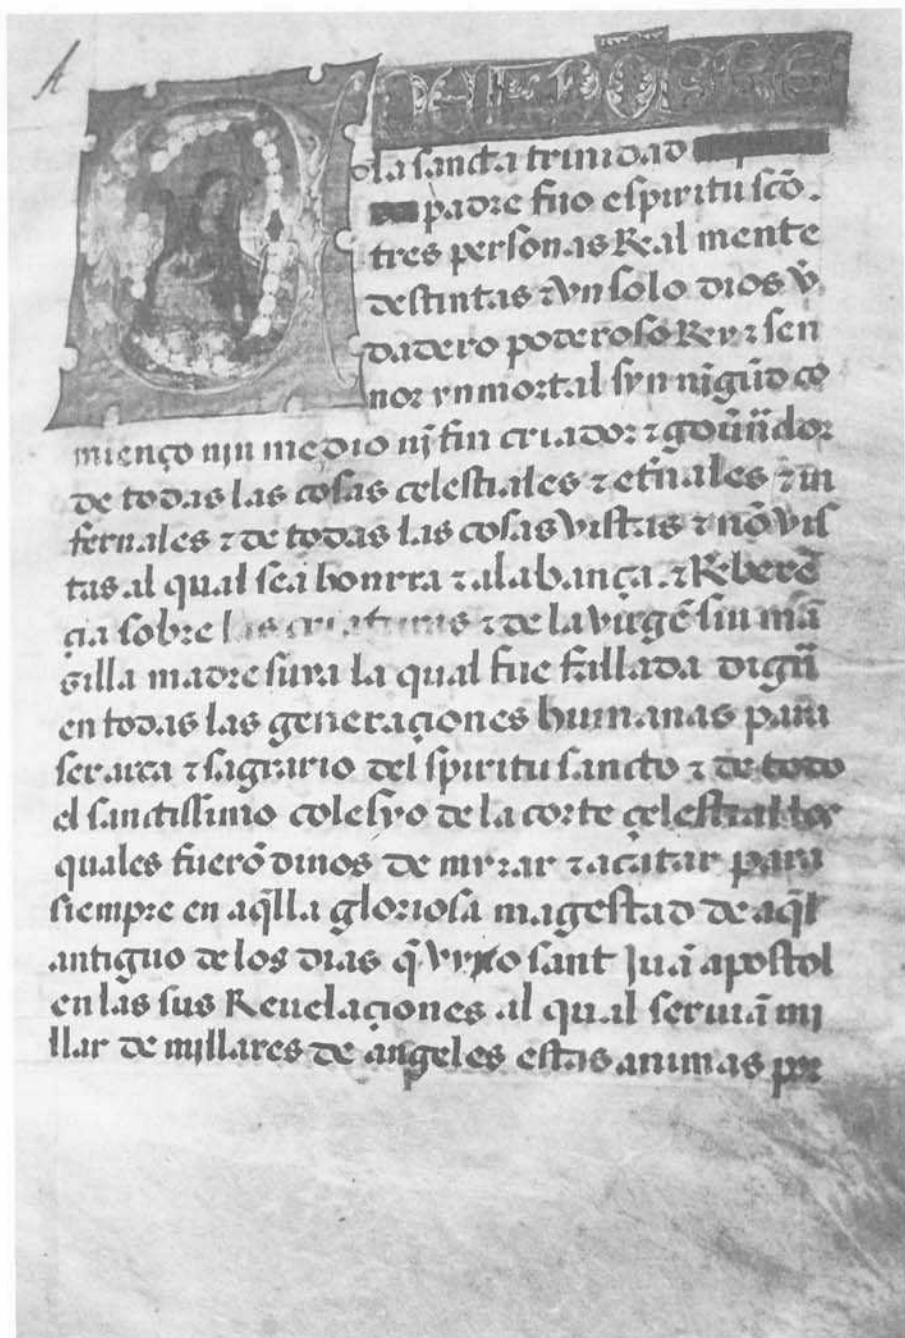 A
EN EL NOBRE
d la sancta trinidad
padre fiio espiritu scõ.
tres personas Real mente
destintas ⁊ vn solo dios v̄
dadero poderoso Rey ⁊ sen
nor ynmortal syn nĩgũo co
mienço nin medio nj̃ fin criador ⁊ goũnador
de todas las cosas celestiales ⁊ et̃nales ⁊ in
fernales ⁊ de todas las cosas vistas ⁊ nõ vis
tas al qual sea honrra ⁊ alabança. ⁊ Reberẽ
çia sobre las criaturas ⁊ de la virgẽ sin mã
zilla madre suya la qual fue fallada digña
en todas las generaçiones humanas para
ser arca ⁊ sagrario del spiritu sancto ⁊ de todo
el sanctissimo colesyo de la corte çelestial los
quales fuerõ dinos de myrar ⁊ acatar para
siempre en aq̃lla gloriosa magestad de aq̃l
antiguo de los dias q̃ vyo sant Juã apostol
en las sus Reuelaçiones al qual seruiã mj
llar de mjllares de angeles estas animas por